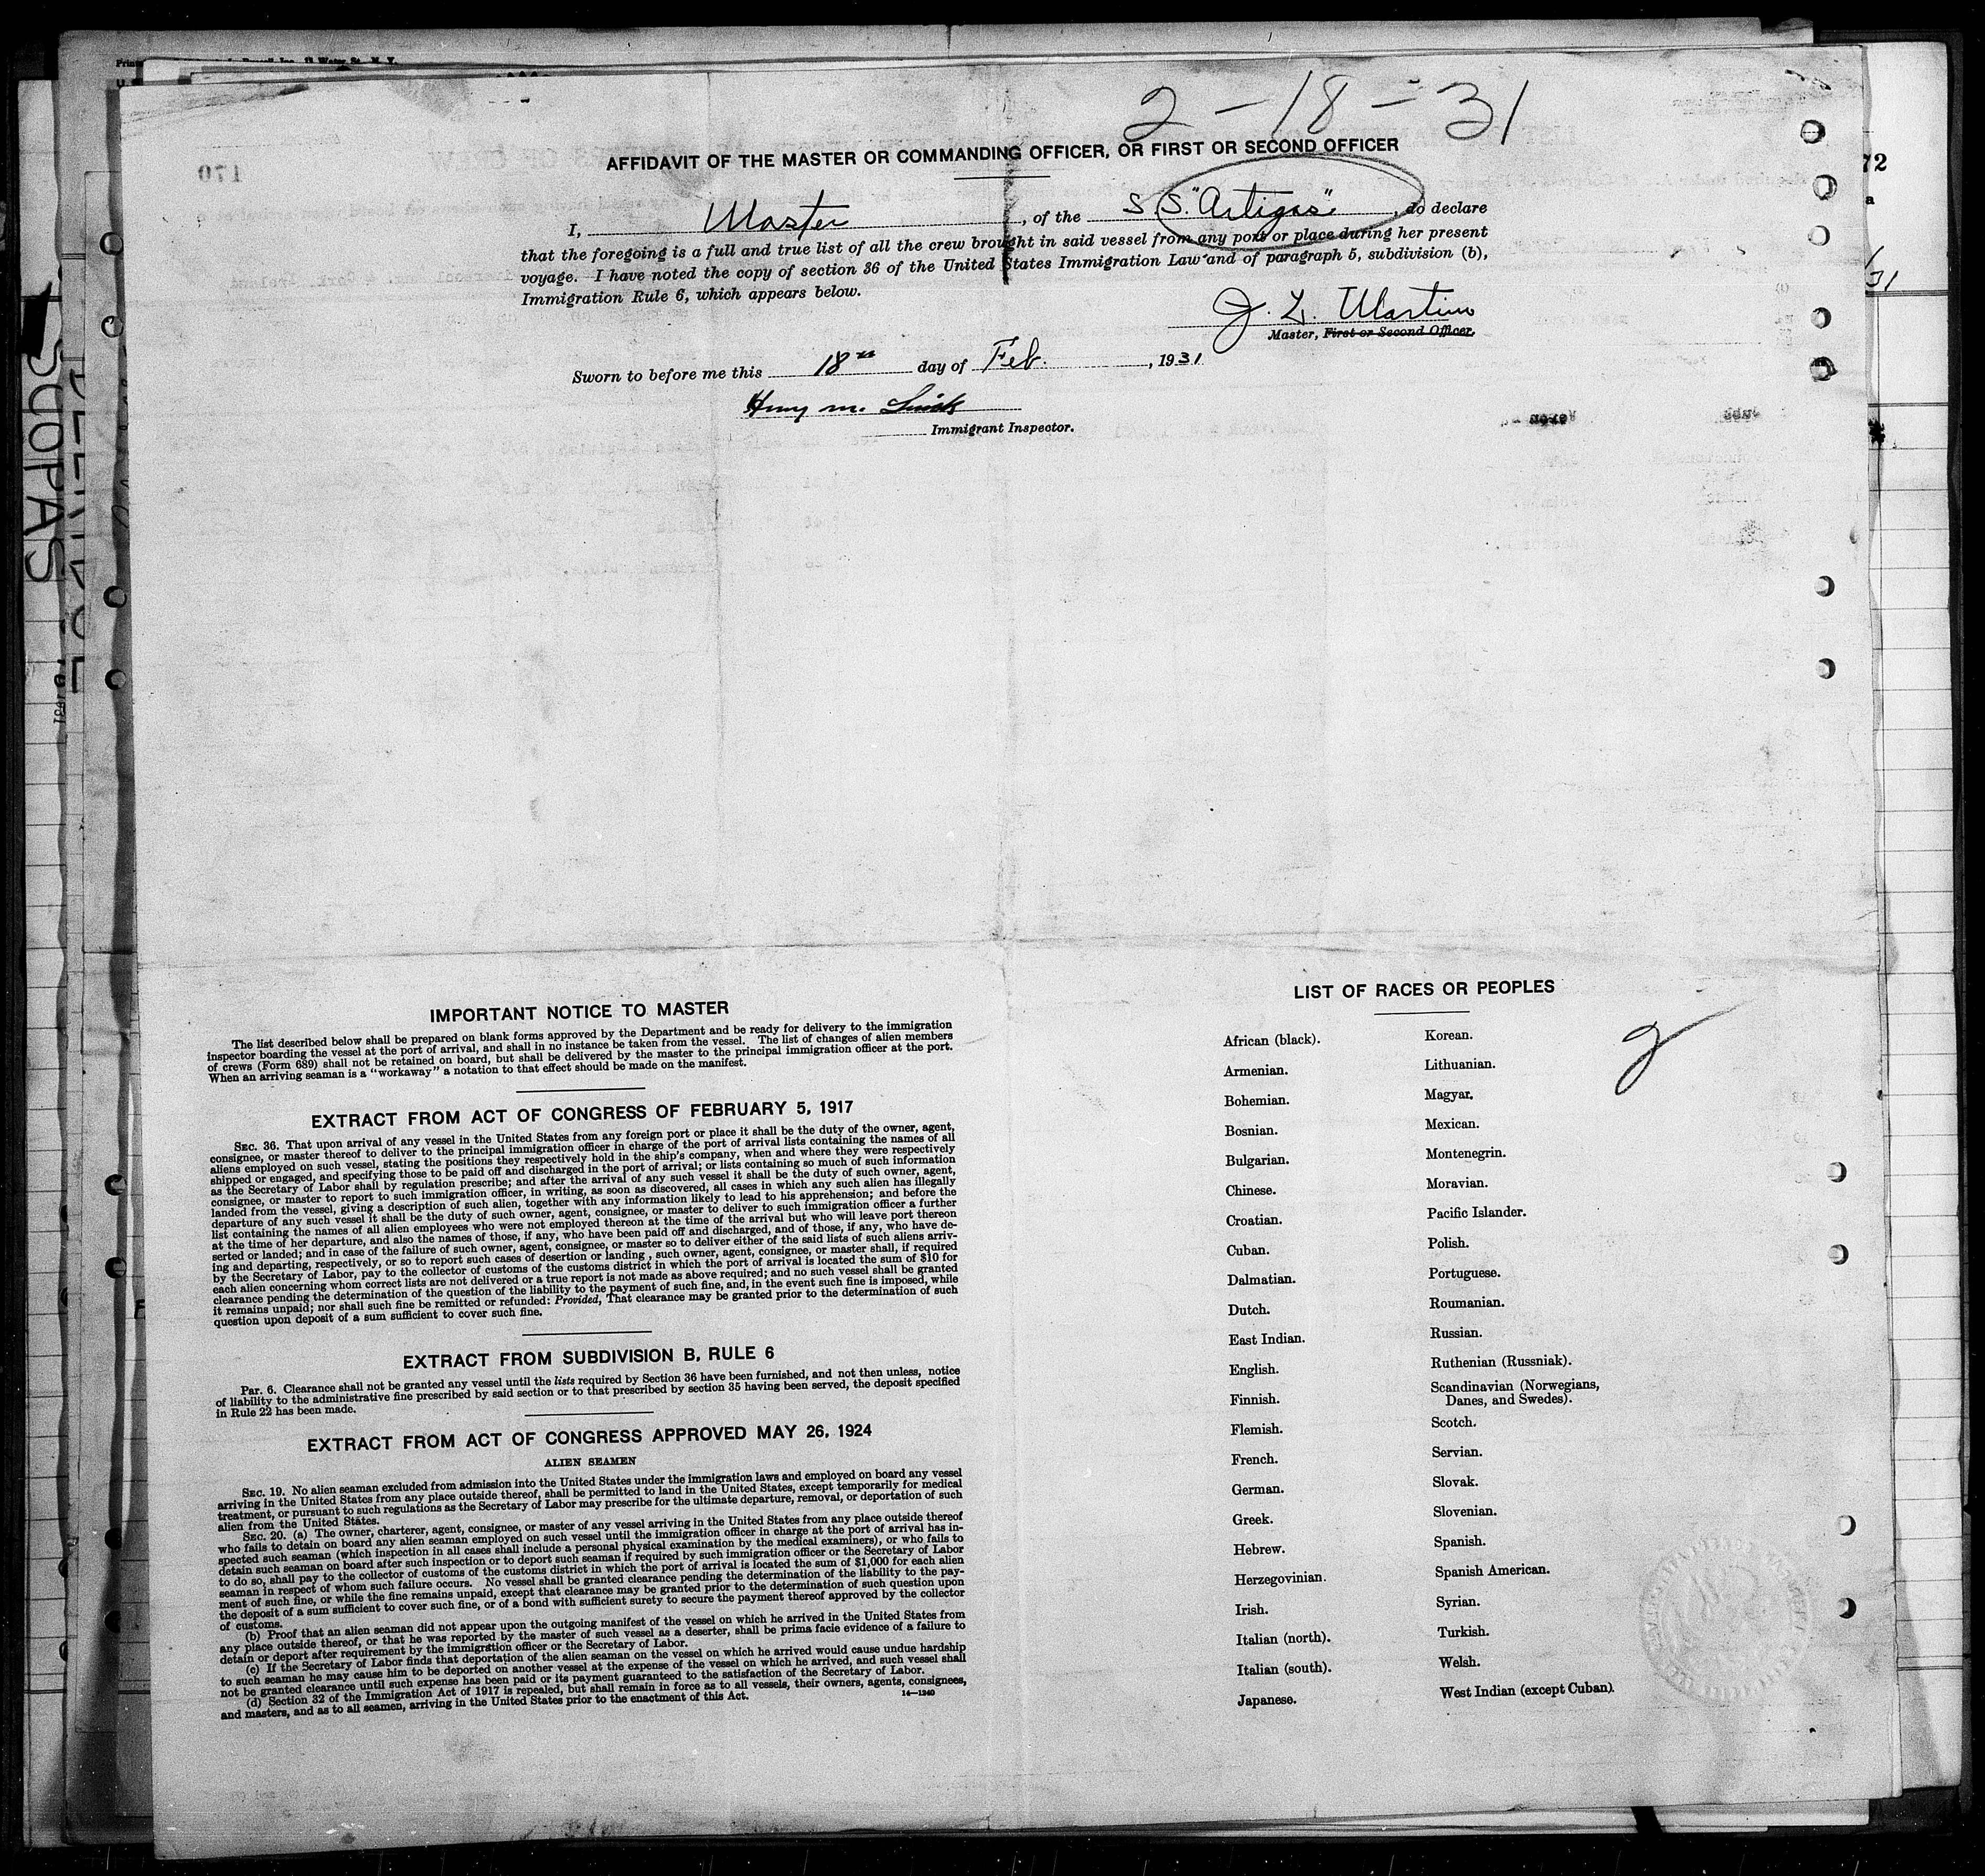 2-18-31
AFFIDAVIT OF THE MASTER OR COMMANDING OFFICER, OR FIRST OR SECOND OFFICER
I, Master, of the S S. "Artigas", do declare
that the foregoing is a full and true list of all the crew brought in said vessel from any port or place during her present
voyage. I have noted the copy of section 36 of the United States Immigration Law and of paragraph 5, subdivision (b),
Immigration Rule 6, which appears below.
J. L. Martin
Master, First or Second Officer.
Sworn to before me this 18th day of Feb., 1931
m.
Immigrant Inspector.
IMPORTANT NOTICE TO MASTER
The list described below shall be prepared on blank forms approved by the Department and be ready for delivery to the immigration
inspector boarding the vessel at the port of arrival, and shall in no instance be taken from the vessel. The list of changes of alien members
of crews (Form 689) shall not be retained on board, but shall be delivered by the master to the principal immigration officer at the port.
When an arriving seaman is a "workaway" a notation to that effect should be made on the manifest.
EXTRACT FROM ACT OF CONGRESS OF FEBRUARY 5, 1917
SEC. 36. That upon arrival of any vessel in the United States from any foreign port or place it shall be the duty of the owner, agent,
consignee, or master thereof to deliver to the principal immigration officer in charge of the port of arrival lists containing the names of all
aliens employed on such vessel, stating the positions they respectively hold in the ship's company, when and where they were respectively
shipped or engaged, and specifying those to be paid off and discharged in the port of arrival; or lists containing so much of such information
as the Secretary of Labor shall by regulation prescribe; and after the arrival of any such vessel it shall be the duty of such owner, agent,
consignee, or master to report to such immigration officer, in writing, as soon as discovered, all cases in which any such alien has illegally
landed from the vessel, giving a description of such alien, together with any information likely to lead to his apprehension; and before the
departure of any such vessel it shall be the duty of such owner, agent, consignee, or master to deliver to such immigration officer a further
list containing the names of all alien employees who were not employed thereon at the time of the arrival but who will leave port thereon
at the time of her departure, and also the names of those, if any, who have been paid off and discharged, and of those, if any, who have de-
serted or landed; and in case of the failure of such owner, agent, consignee, or master so to deliver either of the said lists of such aliens arriv-
ing and departing, respectively, or so to report such cases of desertion or landing , such owner, agent, consignee, or master shall, if required
by the Secretary of Labor, pay to the collector of customs of the customs district in which the port of arrival is located the sum of $10 for
each alien concerning whom correct lists are not delivered or a true report is not made as above required; and no such vessel shall be granted
clearance pending the determination of the question of the liability to the payment of such fine, and, in the event such fine is imposed, while
it remains unpaid; nor shall such fine be remitted or refunded: Provided, That clearance may be granted prior to the determination of such
question upon deposit of a sum sufficient to cover such fine.
EXTRACT FROM SUBDIVISION B, RULE 6
Par. 6. Clearance shall not be granted any vessel until the lists required by Section 36 have been furnished, and not then unless, notice
of liability to the administrative fine prescribed by said section or to that prescribed by section 35 having been served, the deposit specified
in Rule 22 has been made.
EXTRACT FROM ACT OF CONGRESS APPROVED MAY 26, 1924
ALIEN SEAMEN
SEC. 19. No alien seaman excluded from admission into the United States under the immigration laws and employed on board any vessel
arriving in the United States from any place outside thereof, shall be permitted to land in the United States, except temporarily for medical
treatment, or pursuant to such regulations as the Secretary of Labor may prescribe for the ultimate departure, removal, or deportation of such
alien from the United States.
SEC. 20. (a) The owner, charterer, agent, consignee, or master of any vessel arriving in the United States from any place outside thereof
who fails to detain on board any alien seaman employed on such vessel until the immigration officer in charge at the port of arrival has in-
spected such seaman (which inspection in all cases shall include a personal physical examination by the medical examiners), or who fails to
detain such seaman on board after such inspection or to deport such seaman if required by such immigration officer or the Secretary of Labor
to do so, shall pay to the collector of customs of the customs district in which the port of arrival is located the sum of $1,000 for each alien
seaman in respect of whom such failure occurs. No vessel shall be granted clearance pending the determination of the liability to the pay-
ment of such fine, or while the fine remains unpaid, except that clearance may be granted prior to the determination of such question upon
the deposit of a sum sufficient to cover such fine, or of a bond with sufficient surety to secure the payment thereof approved by the collector
of customs.
(b) Proof that an alien seaman did not appear upon the outgoing manifest of the vessel on which he arrived in the United States from
any place outside thereof, or that he was reported by the master of such vessel as a deserter, shall be prima facie evidence of a failure to
detain or deport after requirement by the immigration officer or the Secretary of Labor.
(c) If the Secretary of Labor finds that deportation of the alien seaman on the vessel on which he arrived would cause undue hardship
to such seaman he may cause him to be deported on another vessel at the expense of the vessel on which he arrived, and such vessel shall
not be granted clearance until such expense has been paid or its payment guaranteed to the satisfaction of the Secretary of Labor.
(d) Section 32 of the Immigration Act of 1917 is repealed, but shall remain in force as to all vessels, their owners, agents, consignees,
and masters, and as to all seamen, arriving in the United States prior to the enactment of this Act.
14—1240
LIST OF RACES OR PEOPLES
African (black).
Armenian.
Bohemian.
Bosnian.
Bulgarian.
Chinese.
Croatian.
Cuban.
Dalmatian.
Dutch.
East Indian.
English.
Finnish.
Flemish.
French.
German.
Greek.
Hebrew.
Herzegovinian.
Irish.
Italian (north).
Italian (south).
Japanese.
Korean.
Lithuanian.
Magyar.
Mexican.
Montenegrin.
Moravian.
Pacific Islander.
Polish.
Portuguese.
Roumanian.
Russian.
Ruthenian (Russniak).
Scandinavian (Norwegians,
Danes, and Swedes).
Scotch.
Servian.
Slovak.
Slovenian.
Spanish.
Spanish American.
Syrian.
Turkish.
Welsh.
West Indian (except Cuban).
72
31
170